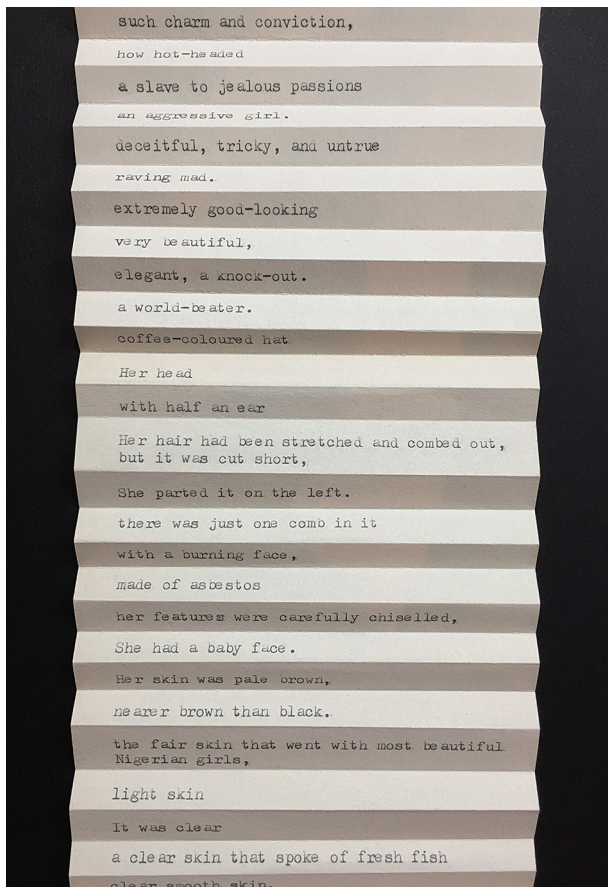 such charm and conviction,
how hot-headed
a slave to jealous passions
an aggressive girl.
deceitful, tricky, and untrue
raving mad.
extremely good-looking
very beautiful,
elegant, a knock-out.
a world-beater.
coffee-coloured hat
Her head
with half an ear
Her hair had been stretched and combed out,
but it was cut short,
She parted it on the left.
there was just one comb in it
with a burning face,
made of asbestos
her features were carefully chiselled,
She had a baby face.
Her skin was pale brown,
nearer brown than black.
the fair skin that went with most beautiful
Nigerian girls,
light skin
It was clear
a clear skin that spoke of fresh fish
clear smooth skin.